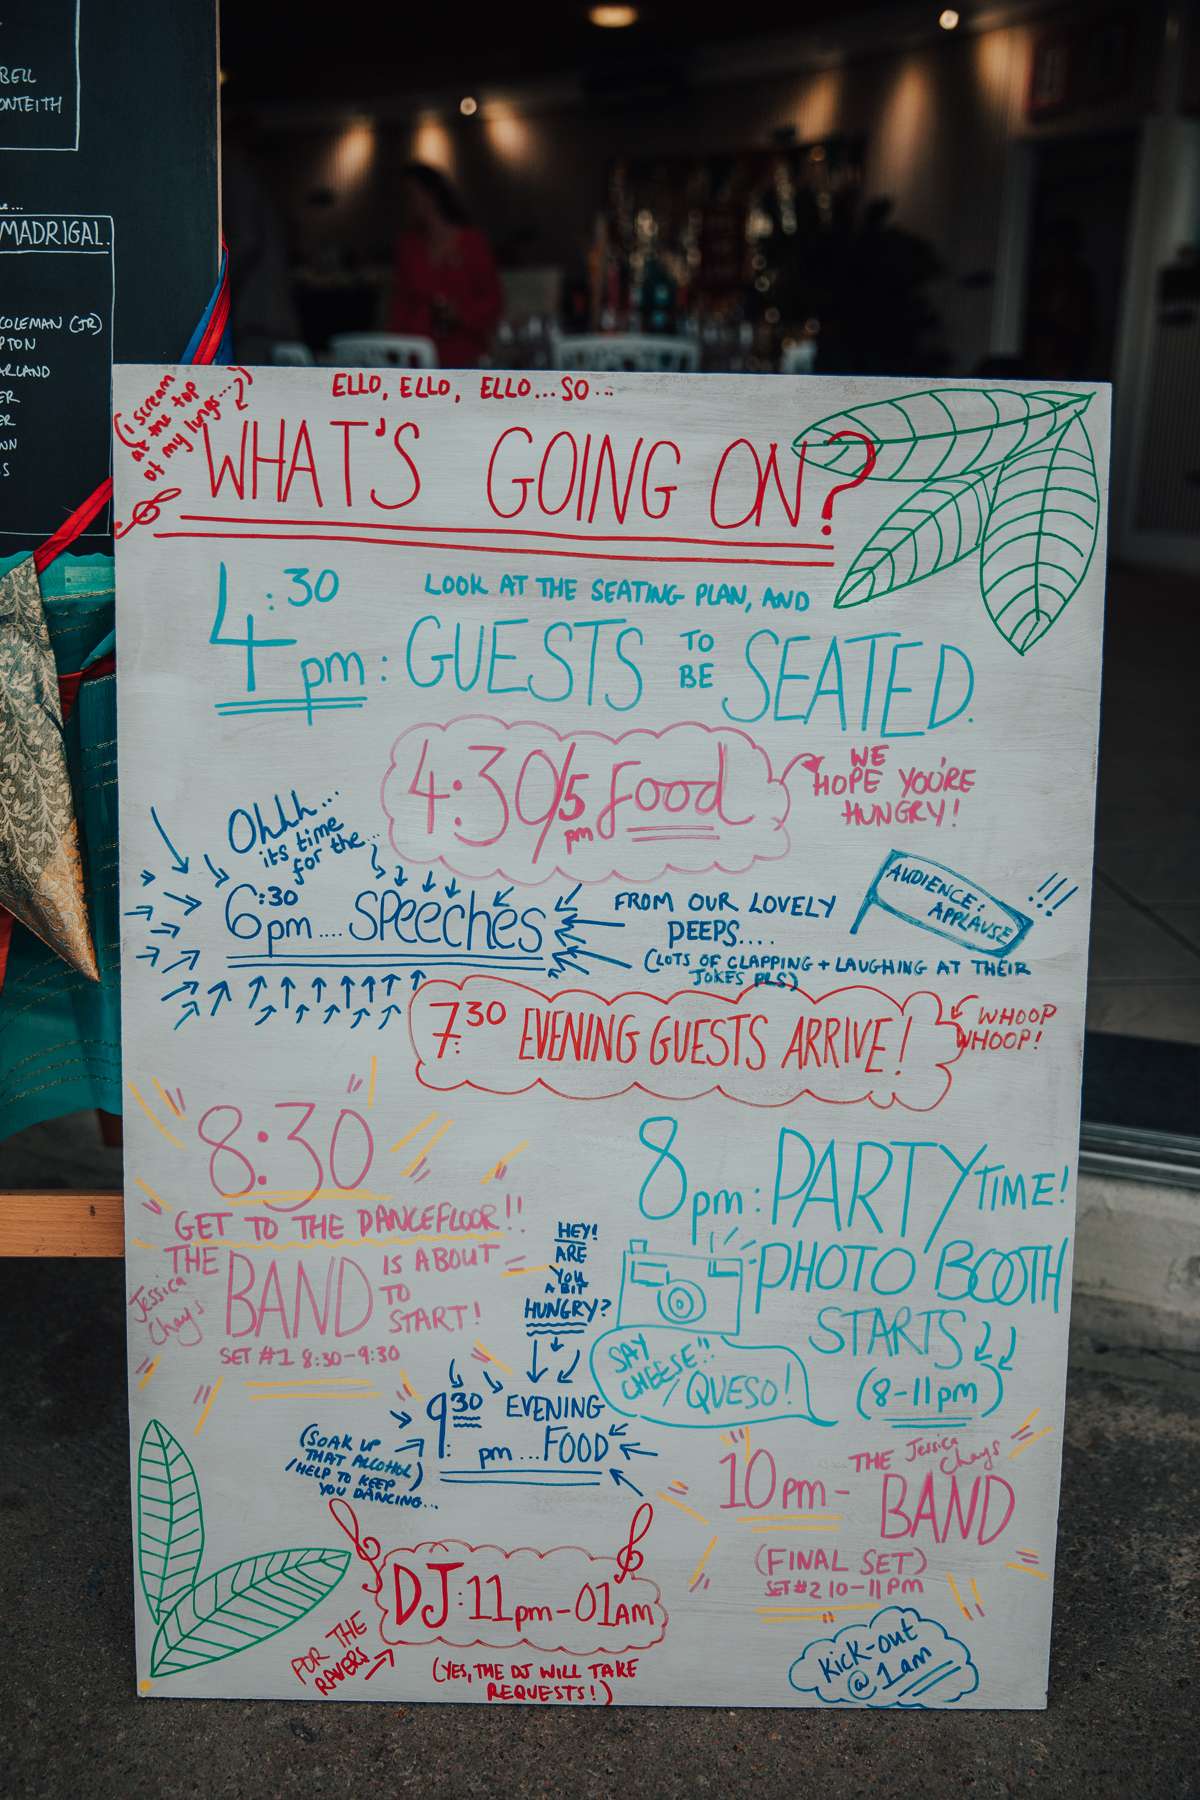 BELL
ONTEITH
MADRIGAL.
COLEMAN (JR)
PTON
ARLAND
ER
ER
NN
S
(I scream
at the top
of my lungs...)
ELLO, ELLO, ELLO...SO...
WHAT'S GOING ON?
4:30 pm: LOOK AT THE SEATING PLAN, AND
GUESTS TO BE SEATED.
4:30/5 pm food
WE
HOPE YOU'RE
HUNGRY!
Ohhh...
its time
for the...
6:30 pm.... SPEECHES
FROM OUR LOVELY
PEEPS....
(LOTS OF CLAPPING + LAUGHING AT THEIR
JOKES PLS)
AUDIENCE:
APPLAUSE
!!!
7:30 EVENING GUESTS ARRIVE!
WHOOP
WHOOP!
8:30
GET TO THE DANCEFLOOR!!
THE Jessica Chays BAND IS ABOUT
TO
START!
SET #1 8:30-9:30
8pm: PARTY TIME!
PHOTO BOOTH
STARTS
(8-11pm)
SAY
CHEESE"!
/QUESO!
HEY!
ARE
YOU
A BIT
HUNGRY?
9:30 pm... EVENING
FOOD
(SOAK UP
THAT ALCOHOL)
/HELP TO KEEP
YOU DANCING...
10pm- THE Jessica Chays
BAND
(FINAL SET)
SET #2 10-11PM
DJ: 11pm-01AM
FOR THE
RAVERS
(YES, THE DJ WILL TAKE
REQUESTS!)
kick-out
@ 1am